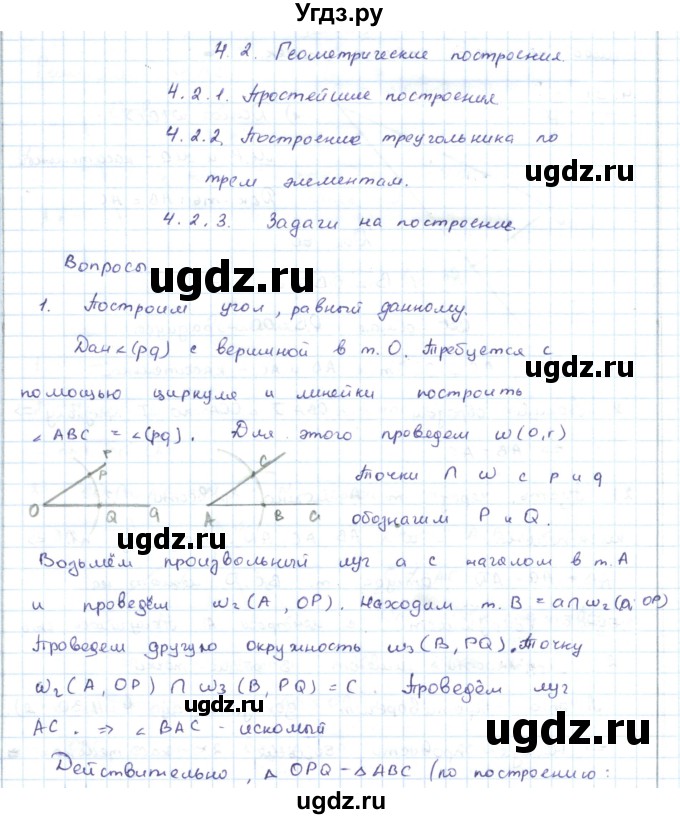 Угдз.ру
4.2. Геометрические построения.
4.2.1. Простейшие построения
4.2.2. Построение треугольника по
трем элементам.
ugdz.ru
4.2.3. Задачи на построение.
Вопросы
ugdz.ru
1. Построим угол, равный данному.
Дан ∠(pq) с вершиной в т. О. Требуется с
помощью циркуля и линейки построить
ugdz.ru
∠ABC = ∠(pq). Для этого проведем ω(0,r)
P C
P Точки ∩ ω с p и q
O Q q A B a обозначим P и Q.
ugdz.ru
ugdz.ru
Возьмём произвольный луч a с началом в т. А
и проведём ω₂(A, OP). Находим т. B = a∩ω₂(A; OP)
Проведем другую окружность ω₃(B, PQ). Точку
ugdz.ru
ω₂(A, OP) ∩ ω₃(B, PQ) = C. Проведём луч
ugdz.ru
AC. ⇒ ∠BAC - искомый
Действительно, △OPQ - △ABC (по построению:
ugdz.ru
ugdz.ru